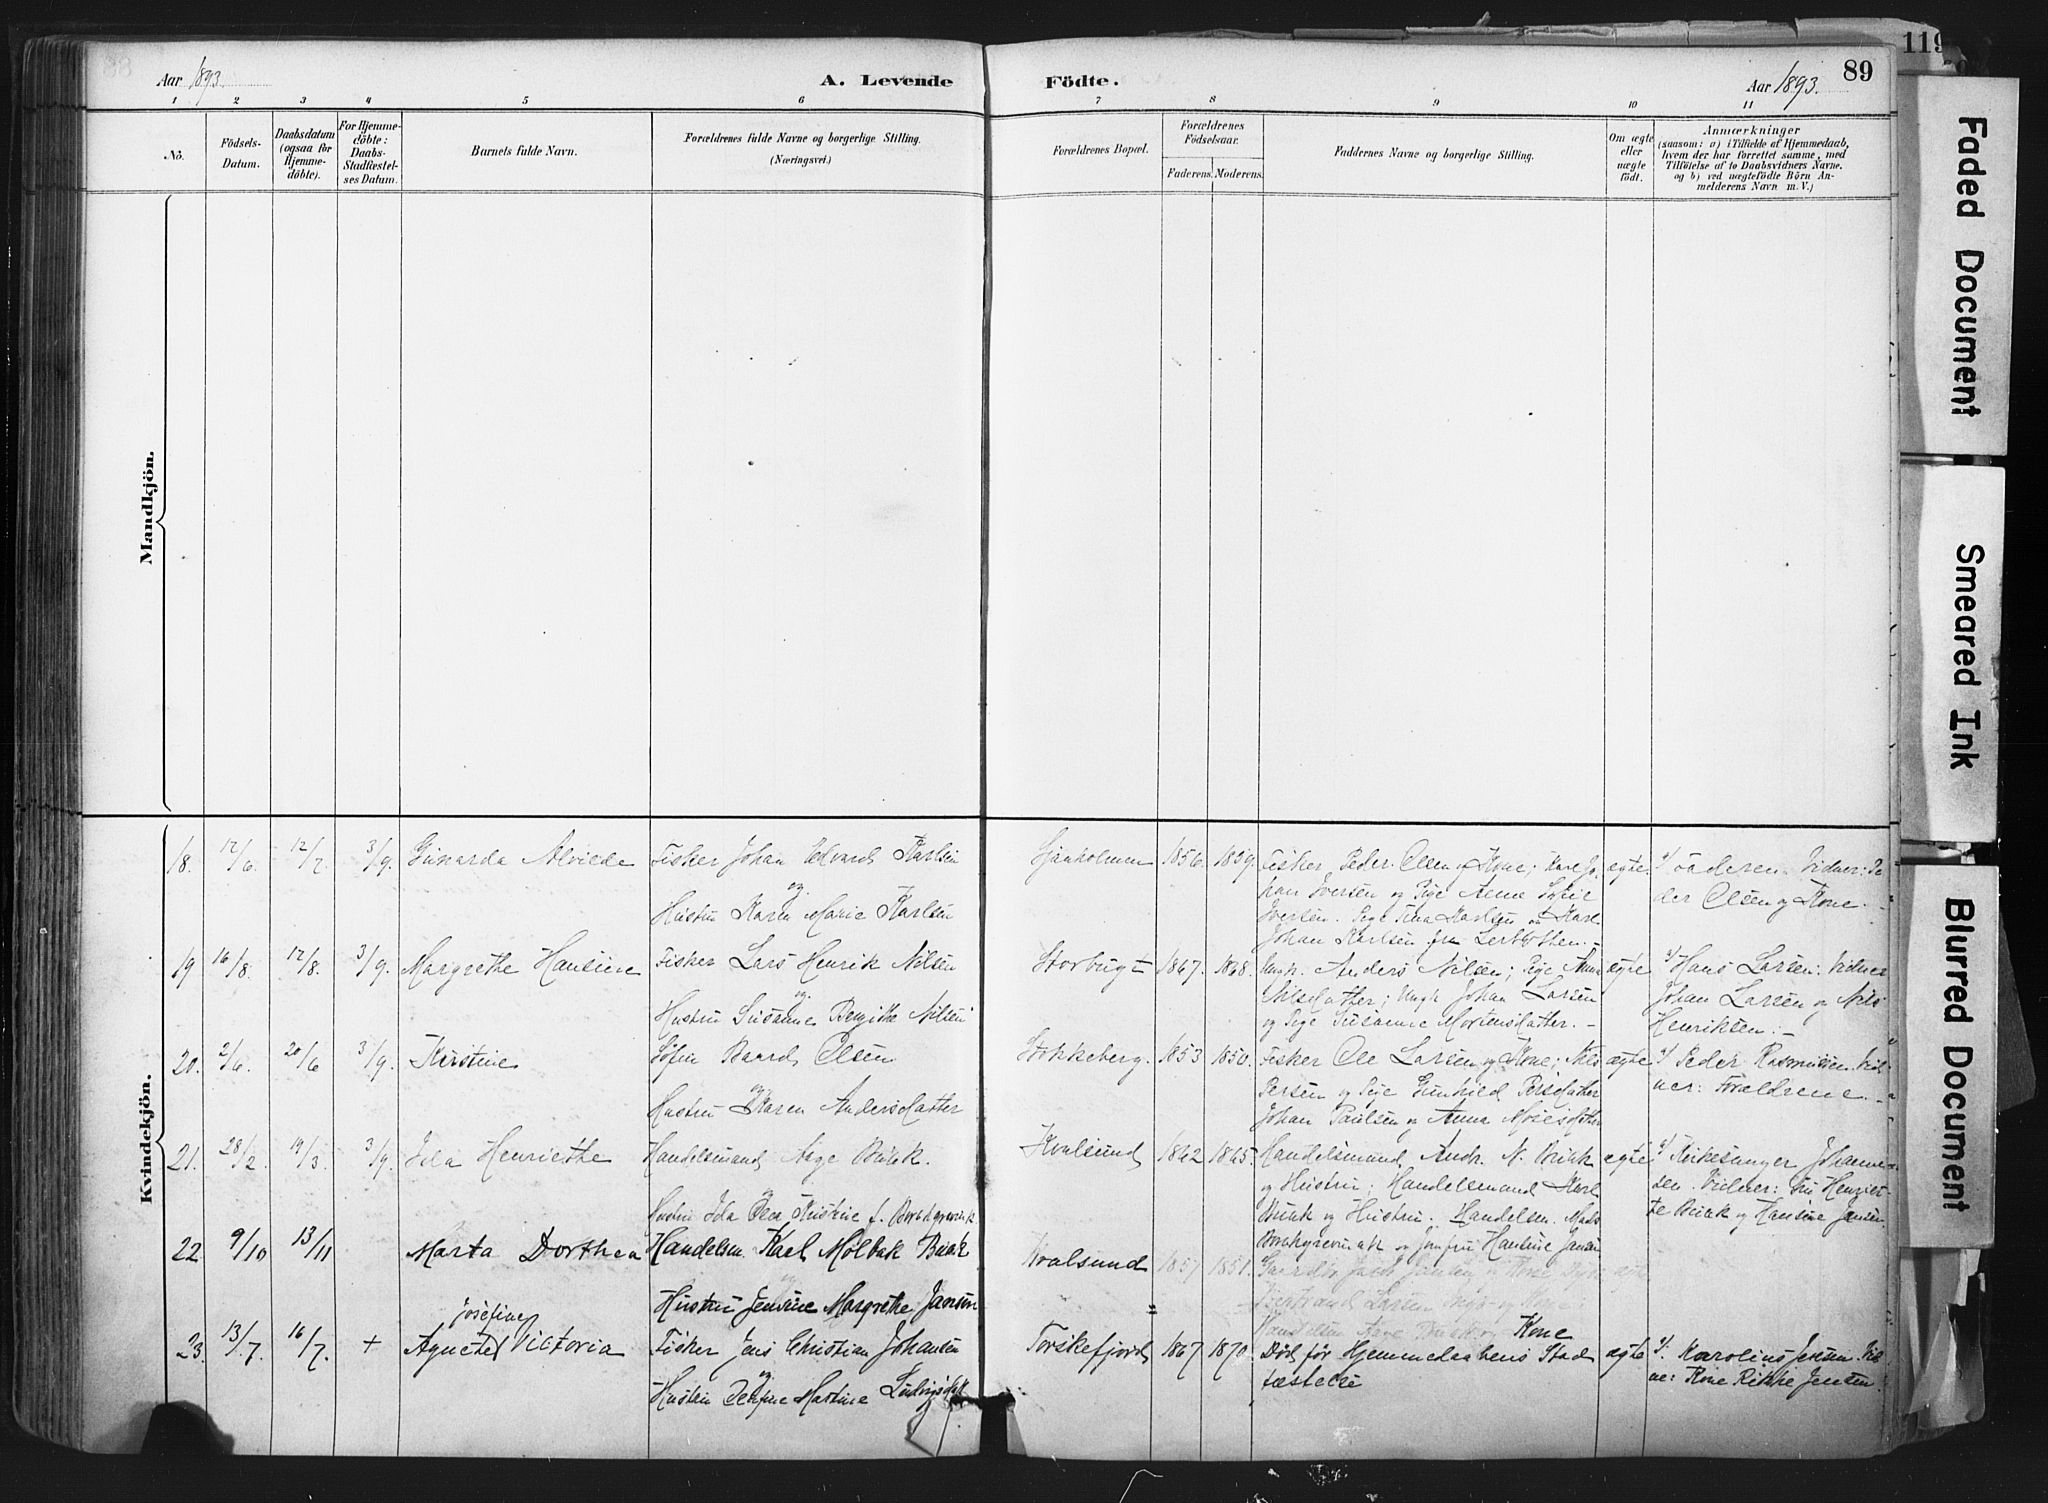 Aar 1893. A. Levende Födte. Aar 1893. 89
119
1 2 3 4 5 6 7 8 9 10 11
No.
Födsels-Datum.
Daabsdatum (ogsaa for Hjemmedöbte).
For Hjemmedöbte: Daabs-Stadfæstelses Datum.
Barnets fulde Navn.
Forældrenes fulde Navne og borgerlige Stilling.
(Næringsvei.)
Forældrenes Bopæl.
Forældrenes Födselsaar.
Faderens. Moderens.
Faddernes Navne og borgerlige Stilling.
Om ægte eller uægte födt.
Anmærkninger
(saasom: a) i Tilfælde af Hjemmedaab, hvem der har forrettet samme, med Tilföielse af to Daabsvidners Navne. og b) ved uægtefödte Börn Anmelderens Navn m. V.)
Mandkjön.
Kvindekjön.
18. 12/6. 12/7. 3/9. Gunarda Alvilde
Fisker Johan Edvard Karlsen
og
Hustru Karen Marie Karlsen
1856. 1859.
Fisker Peder Olsen og Kone; Karl Jo-
han Iversen og Pige Anne Sofie
Iversen. Pige Tina Karlsen og Karl
Johan Karlsen fra
ægte
Faderen. Vidner: Pe-
der Olsen og Kone.
19 16/8. 3/9. Margrethe Hansine
Fisker Lars Henrik Nilsen
og
Hustru Susanne Bergitte Nilsen
Storbugt 1867. 1868.
Ungk. Anders Nilsen; Pige Anna
Nilsdatter; Ungk. Johan Larsen
og Pige Susanne Mortensdatter.
ægte
Hans Larsen. Vidner
Johan Larsen og Nils
Henriksen.
20. 2/6. 20/6 3/9. Kirstine
Søfin Baard Olsen
og
Hustru Karen Andersdatter
Stokkeberg. 1853 1850.
Fisker Ole Larsen og Kone; Nils
Persen og Pige Gunhild Persdatter
Johan Paulsen og Anna Mosesdatter
ægte
Peder Rasmussen. Vid-
ner: Forældrene.
21. 28/2. 19/3. 3/9. Ida Henriethe
Handelsmand Aage Buak.
og
Hustru Ida Kristine f. Borchgrevink
Kvalsund 1862 1865.
Handelsmand Andr. N. Buak
og Hustru; Handelsmand Karl
Buak og Hustru; Handelsm. Mads
Borchgrevink og Jomfru Hansine Jansen
ægte
Kirkesanger Johanne-
sen. Vidner: Henriet-
te Buak og Hansine Jansen.
22 9/10 13/11 Marta Dorthea
Handelsm. Karl Mølbak Buak
og
Hustru Jensine Margrethe Jansen
Kvalsund 1857 1851.
Larsen og Kone
Handelsm. Aage Buak og Kone
23. 13/7. 16/7. + Agnete Josefine Victoria
Fisker Jens Christian Johansen
og
Hustru Martine Ludvigsdatt.
Torskefjord 1867 1870.
Død før Hjemmedaabens Stad-
fæstelse
ægte
Karolius Jensen. Vid-
ne: Kone Rikke Jensen
Faded Document
Smeared Ink
Blurred Document